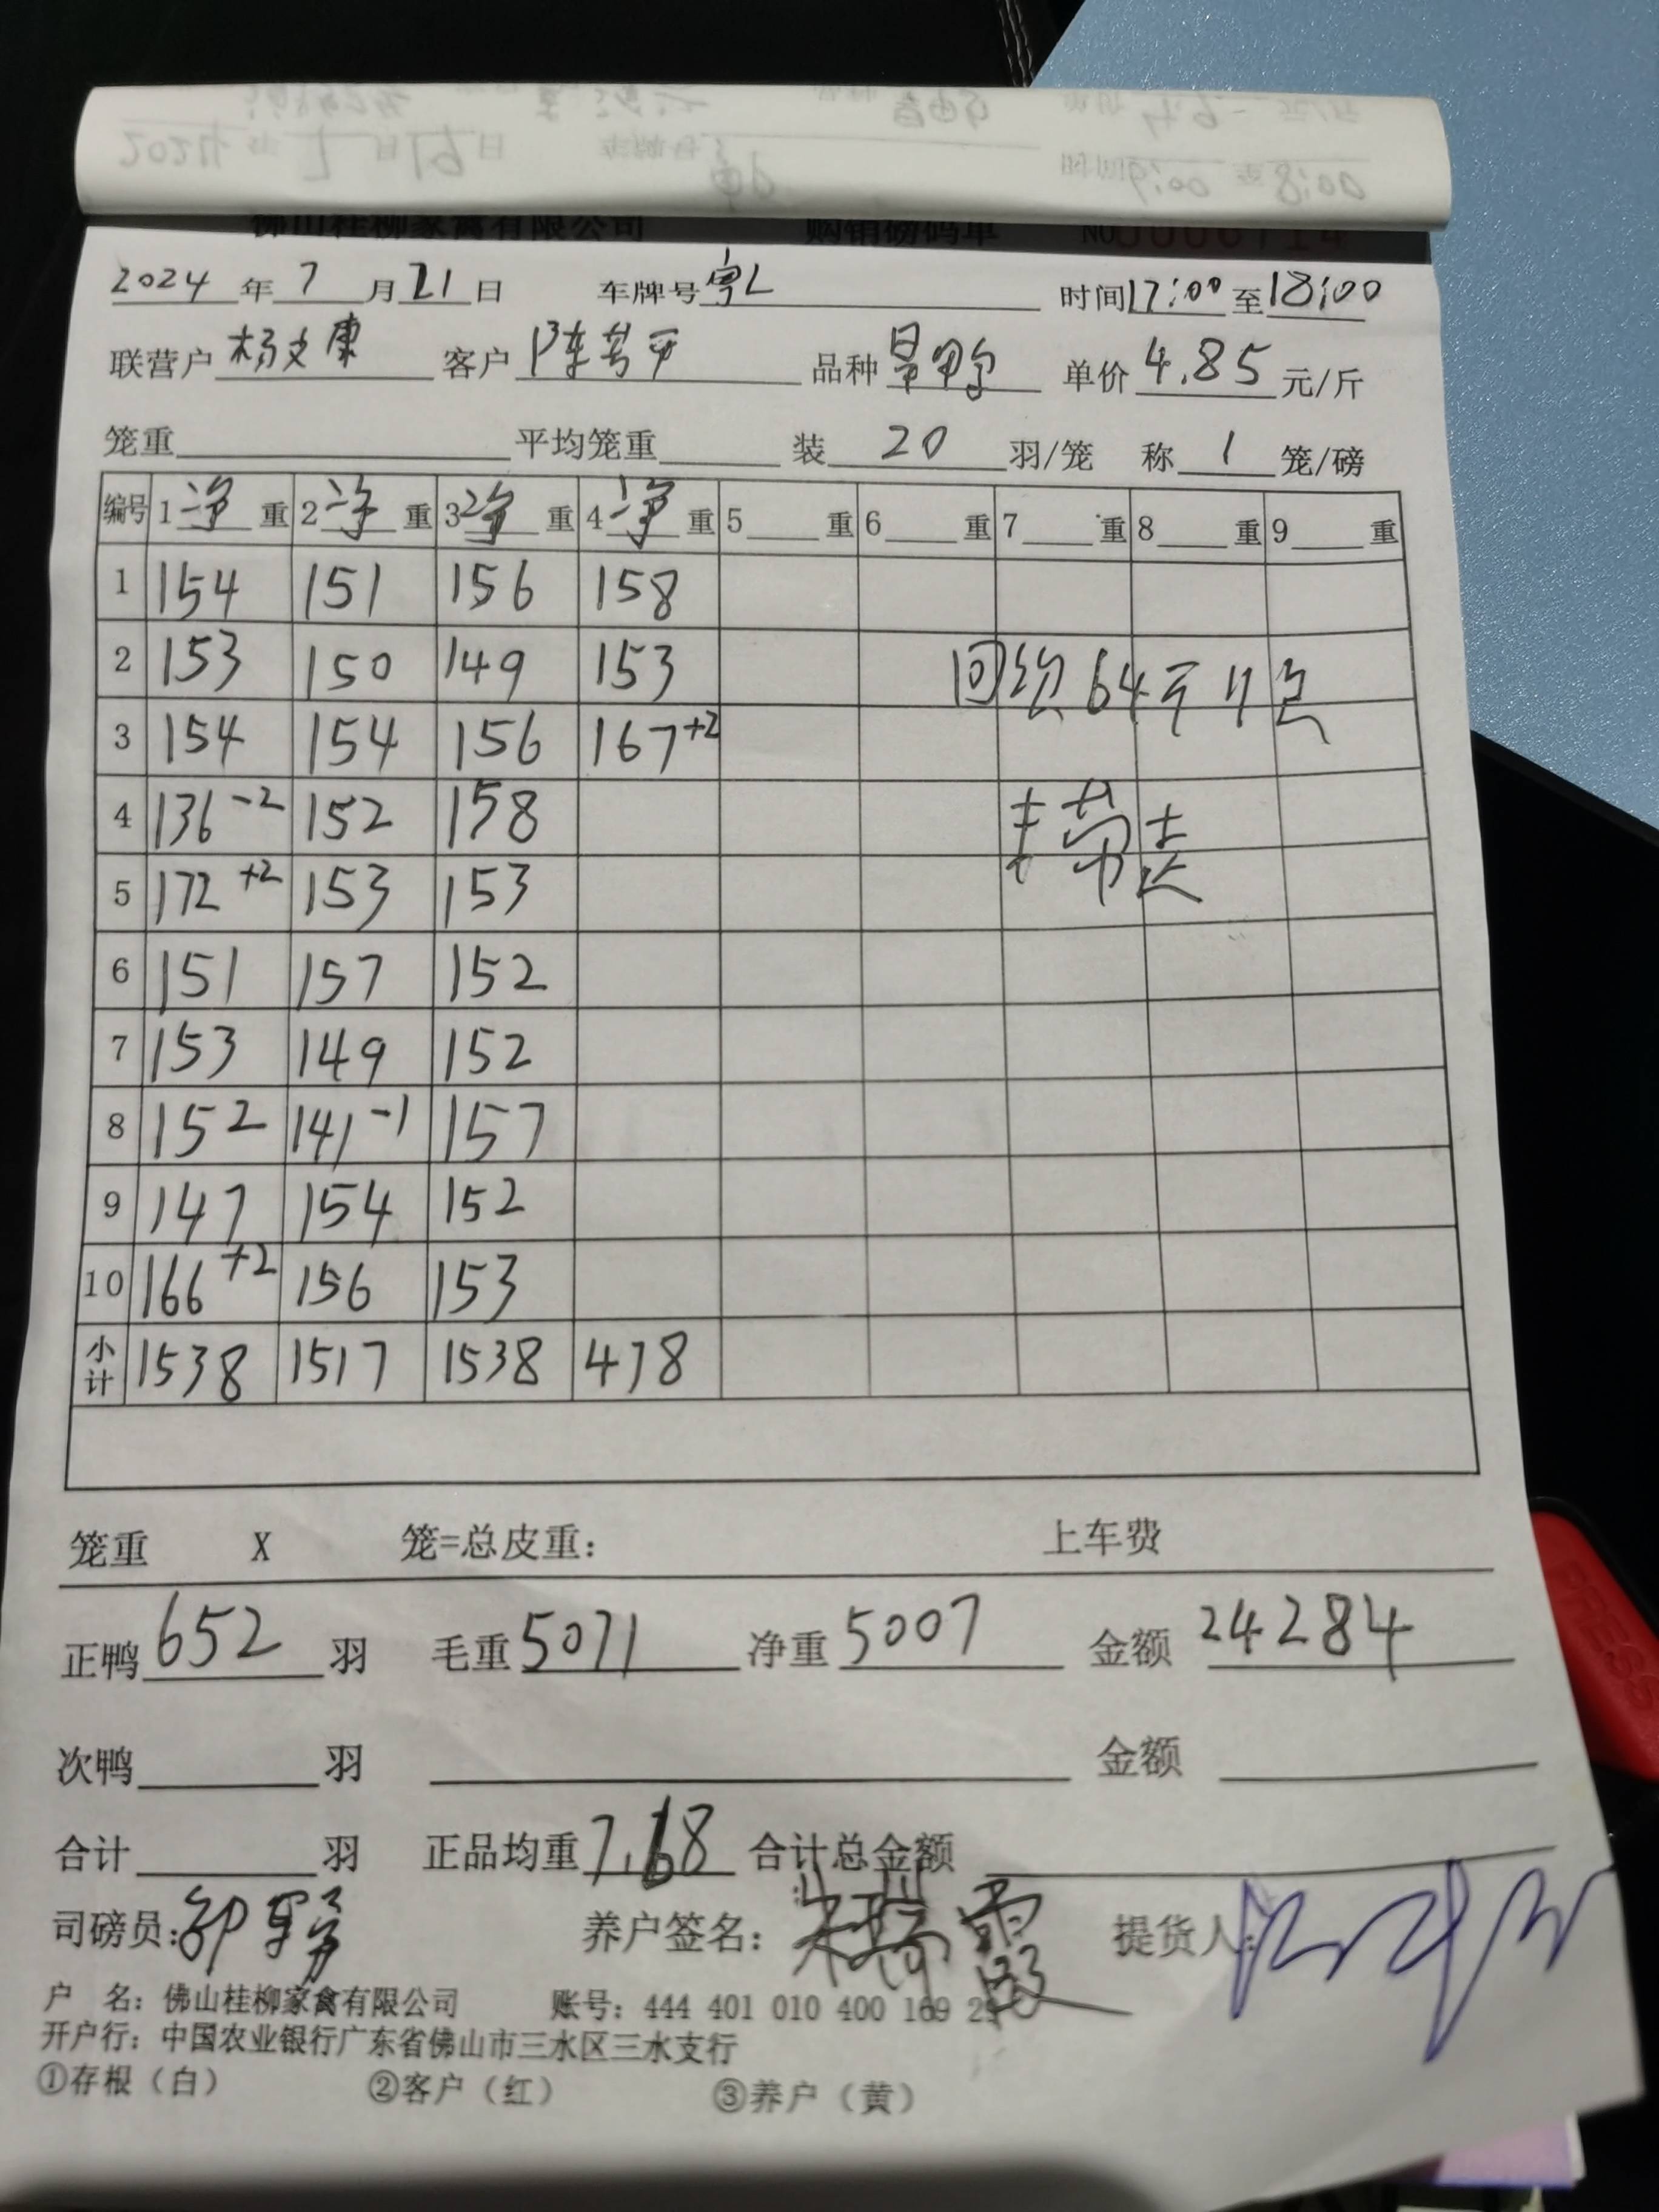 佛山桂柳家禽有限公司 购销磅码单 NO
2024 年 7 月 21 日 车牌号 粤L 时间 17:00 至 18:00
联营户 杨文康 客户 陈芳平 品种 单价 4.85 元/斤
笼重 平均笼重 装 20 羽/笼 称 1 笼/磅
编号 1 净 重 2 净 重 3 净 重 4 净 重 5 重 6 重 7 重 8 重 9 重
1 154 151 156 158
2 153 150 149 153
回 64斤
3 154 154 156 167+2
4 136-2 152 158
5 172+2 153 153
6 151 157 152
7 153 149 152
8 152 141-1 157
9 147 154 152
10 166+2 156 153
小计 1538 1517 1538 478
笼重 X 笼=总皮重: 上车费
正鸭 652 羽 毛重 5071 净重 5007 金额 24284
次鸭 羽 金额
合计 羽 正品均重 7.68 合计总金额
司磅员: 养户签名: 提货人:
户 名: 佛山桂柳家禽有限公司 账号: 444 401 010 400 169
开户行: 中国农业银行广东省佛山市三水区三水支行
①存根（白） ②客户（红） ③养户（黄）